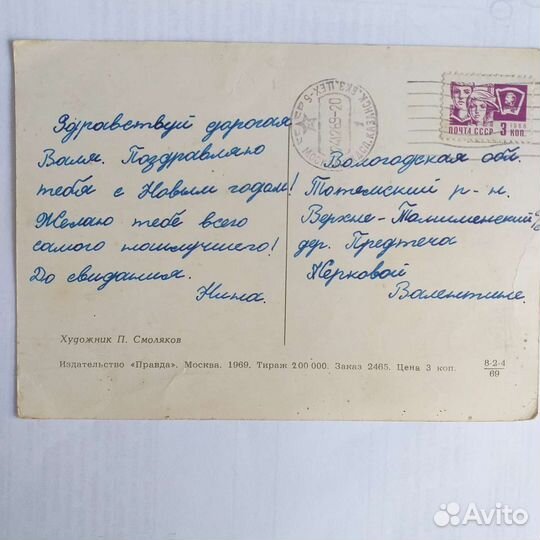 Здравствуй дорогая
Валя. Поздравляю
тебя с Новым годом!
Желаю тебе всего
самого наилучшего!
До свидания.
Нина.
Художник П. Смоляков
Издательство «Правда». Москва. 1969. Тираж 200 000. Заказ 2465. Цена 3 коп.
8-2-4
69
1966
ПОЧТА СССР 3 КОП.
Вологодская обл.
Тотемский р-н.
Верхне-Толшменский с/с
дер. Предтеча
Жерковой
Валентине.
Avito